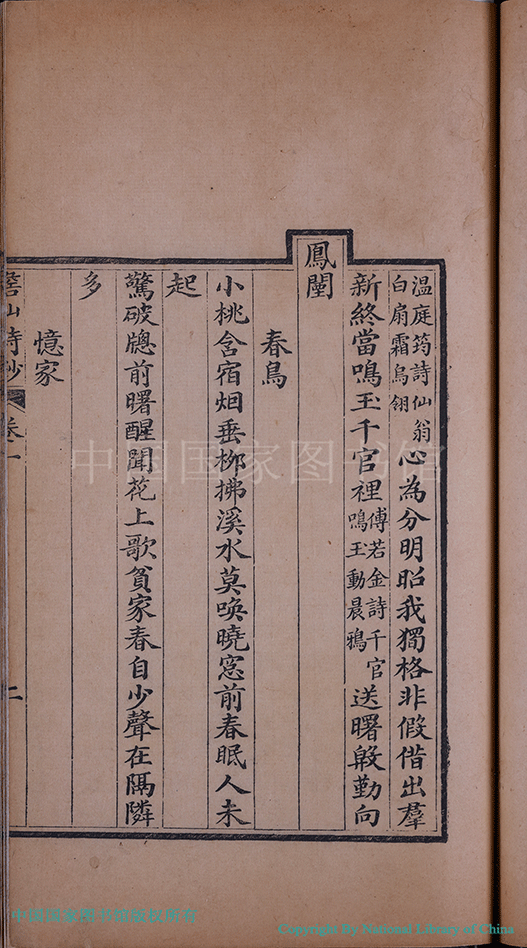 温庭筠詩仙翁白扇霜烏翎心為分明昭我獨格非假借出羣
新終當鳴玉千官裡傅若金詩千官鳴玉動晨鴉送曙殷勤向
鳳闉
春鳥
小桃含宿烟垂柳拂溪水莫喚曉窓前春眠人未
起
驚破牕前曙醒聞花上歌貧家春自少聲在隔隣
多
憶家
山詩鈔 卷一 二
中国国家图书馆
中国国家图书馆版权所有
Copyright By National Library of China